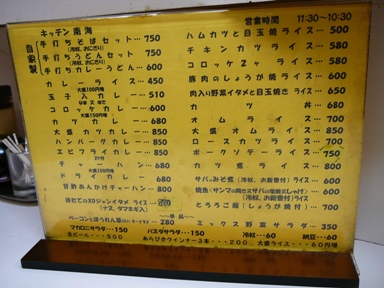 キッチン南海
営業時間 11:30〜10:30
自家製
手打ちそばセット… 750
(冷奴、おにぎり)
手打ちうどんセット 750
(冷奴、おにぎり)
手打ちカレーうどん… 600
カレーライス 450
大盛100円増
玉子入カレー 510
コロッケカレー 600
大盛100円増
カツカレー 680
大盛カツカレー… 850
ハンバーグカレー… 850
エビフライカレー… 850
チャーハン 680
ドライカレー 680
甘酢あんかけチャーハン 800
ほたてのXOジャンイタメライス
(ナス、タマネギ入)
280
マカロニサラダ…150
生ビール…500
ハムカツと目玉焼ライス… 500
チキンカツライス… 580
コロッケ2ヶライス… 580
豚肉のしょうが焼ライス… 600
肉入り野菜イタメと目玉焼きライス 650
カツ丼 680
オムライス 700
大盛オムライス 850
ロースカツライス 700
ポークソテーライス 700
カツ煮ライス 800
サバのみそ煮(冷奴、お新香付)ライス 600
(冷奴、お新香付)ライス 600
とろろご飯(しょうが焼付) 700
〜単品〜
ミックス野菜サラダ 350
パスタサラダ…150
冷奴…60
納豆…60
あらびきウインナー3本…200
大盛ライス…60円増